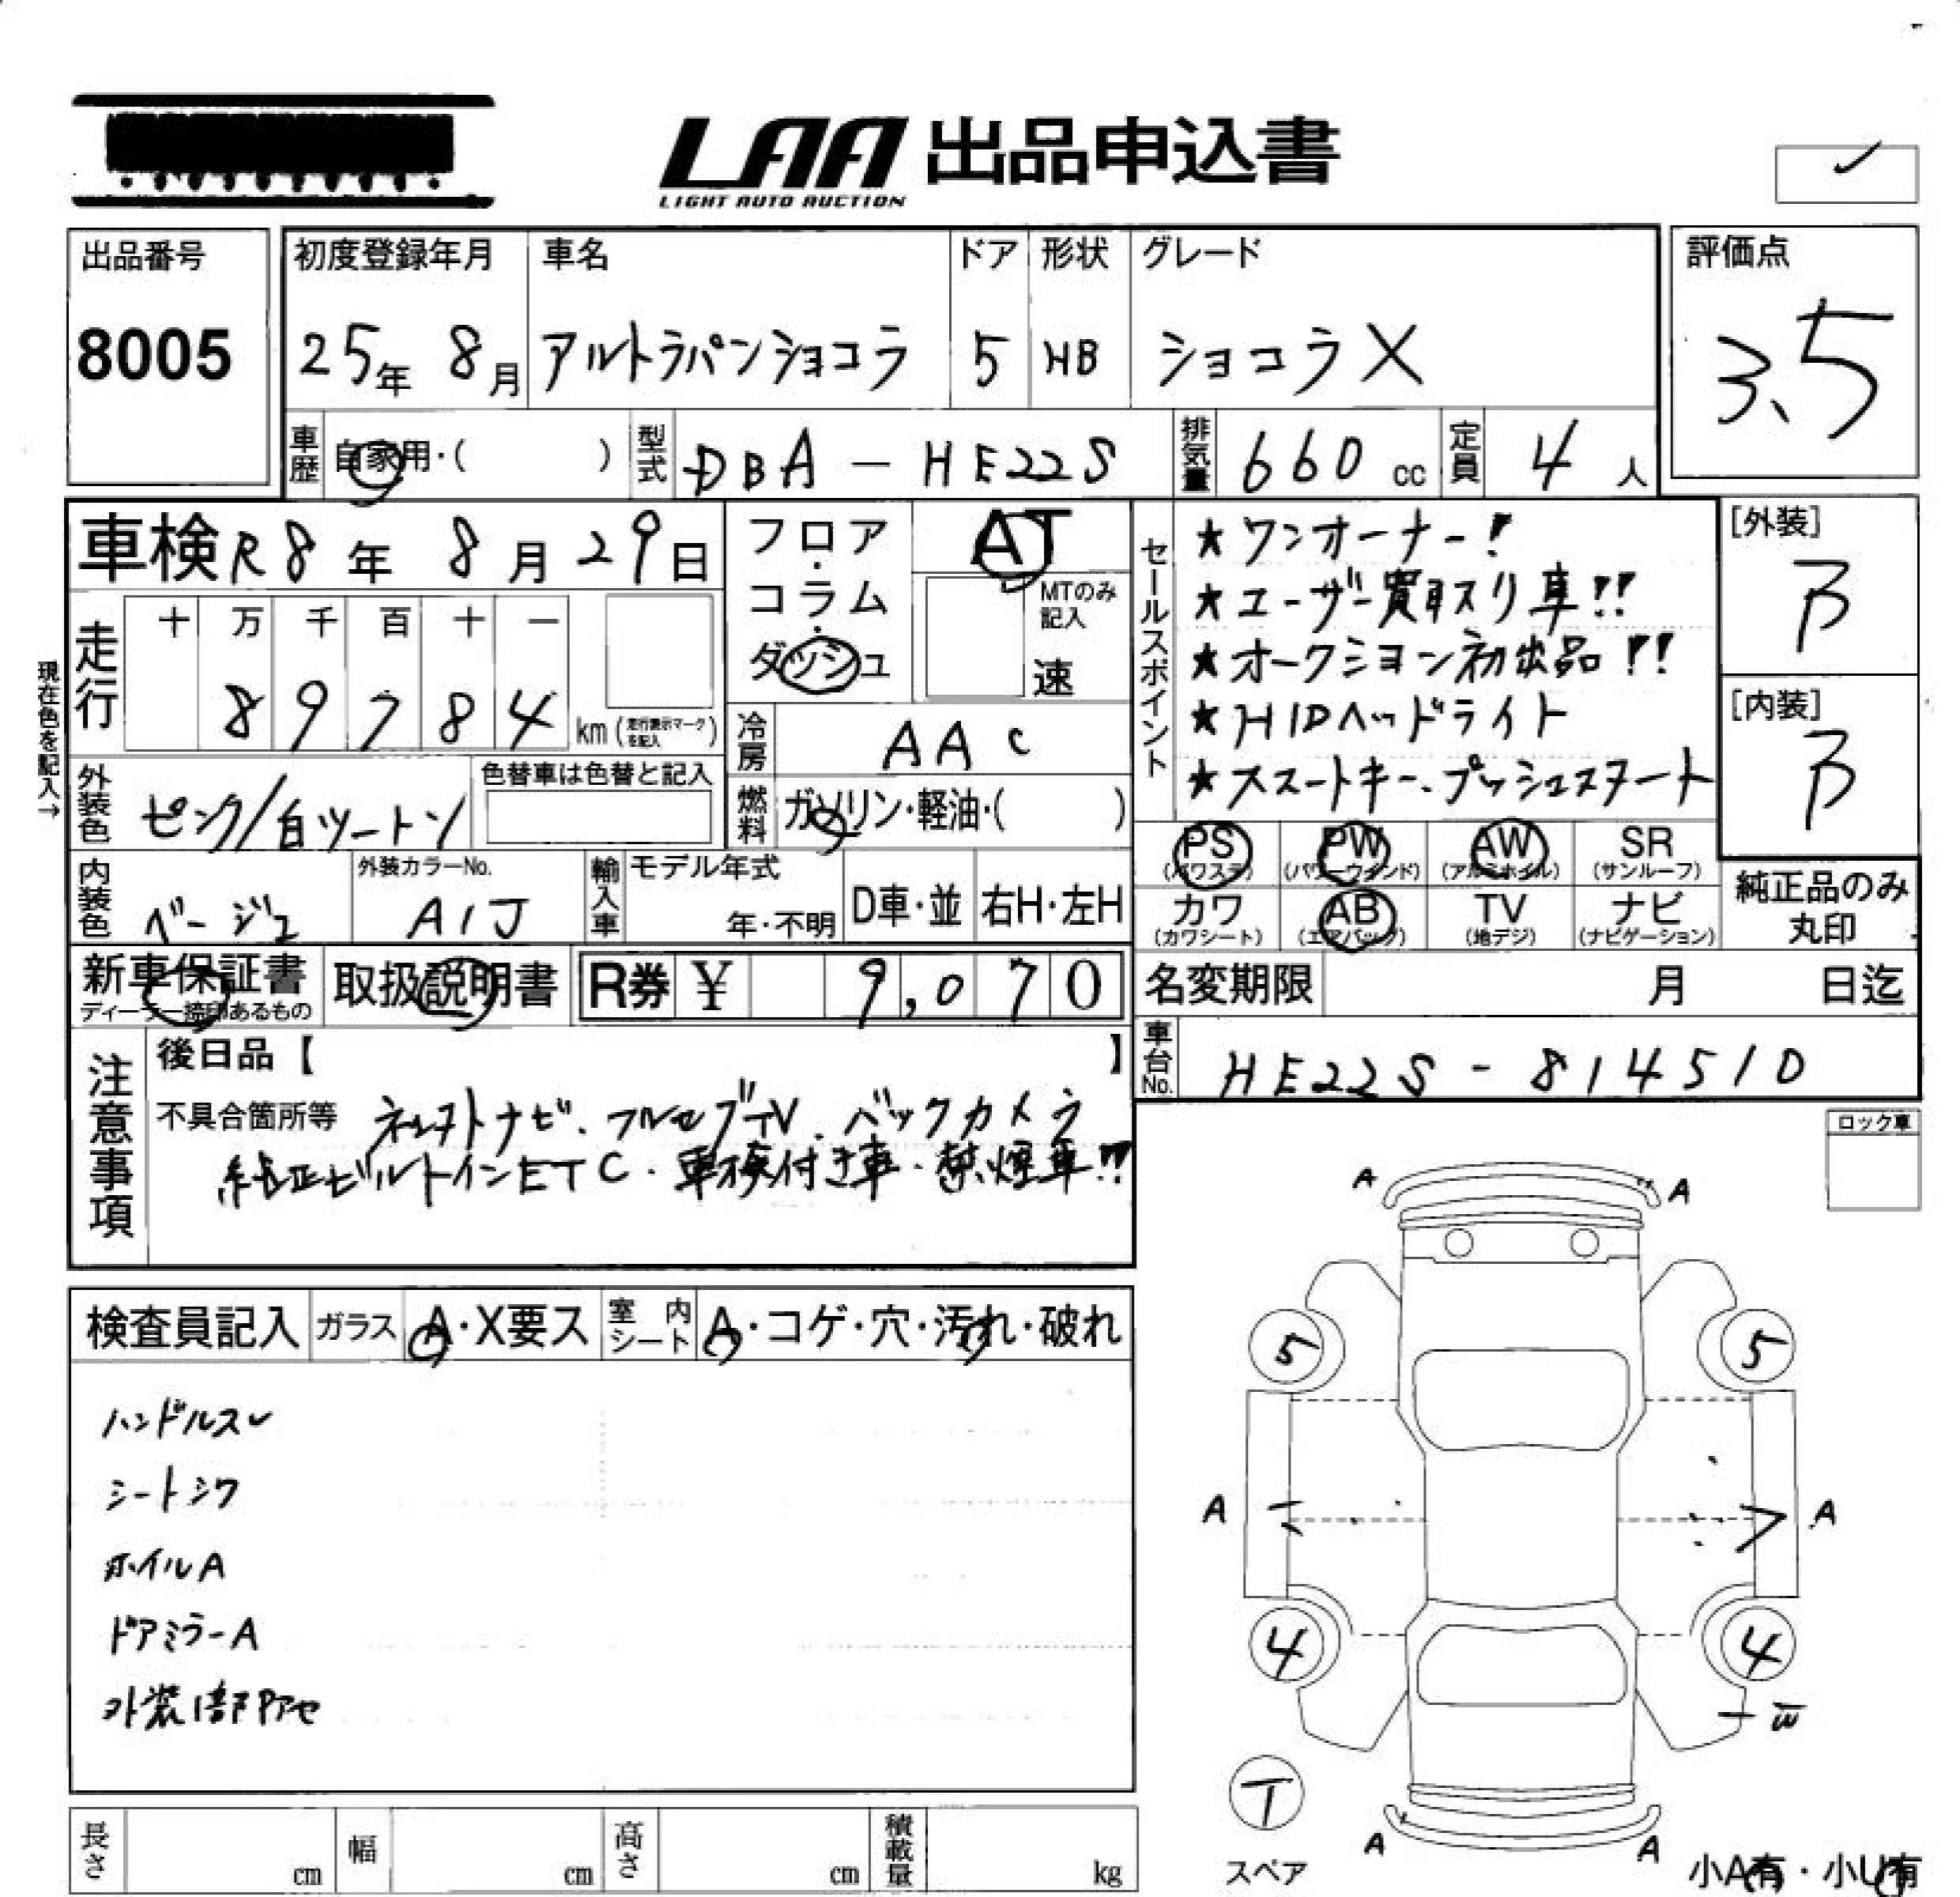 LAA 出品申込書
LIGHT AUTO AUCTION
出品番号
8005
初度登録年月
25年 8月
車名
アルトラパンショコラ
ドア
5
形状
HB
グレード
ショコラX
評価点
3.5
車歴
自家用・( )
型式
DBA-HE22S
排気量
660 cc
定員
4人
車検 R8年 8月 29日
フロア・コラム・ダッシュ
AT
MTのみ記入
速
走行
十 万 千 百 十 一
8 9 7 8 4 km (走行表示マークを記入)
現在色を記入→
冷房
AAC
燃料
ガソリン・軽油・( )
外装色
ピンク/白ツートン
色替車は色替と記入
内装色
ベージュ
外装カラーNo.
A1J
輸入車
モデル年式
年・不明
D車・並
右H・左H
セールスポイント
★ワンオーナー!
★ユーザー買取スリ車!!
★オークション初出品!!
★HIDヘッドライト
★スマートキー、プッシュスタート
[外装]
B
[内装]
B
PS (パワステ)
PW (パワーウインド)
AW (アルミホイル)
SR (サンルーフ)
カワ (カワシート)
AB (エアバック)
TV (地デジ)
ナビ (ナビゲーション)
純正品のみ丸印
新車保証書
ディーラー捺印あるもの
取扱説明書
R券 ¥ 9,070
名変期限 月 日迄
車台No.
HE22S-814510
注意事項
後日品【 】
不具合箇所等
ナビ、フルセグTV、バックカメラ
純正ビルトインETC・車検付き車・禁煙車!!
ロック車
検査員記入
ガラス
A・X要ス
室内シート
A・コゲ・穴・汚れ・破れ
ハンドルスレ
シートシワ
ホイルA
ドアミラーA
外装1部Pアセ
A A
5 5
A A
4 4
W
T
スペア
A A
小A有・小U有
長さ cm
幅 cm
高さ cm
積載量 kg